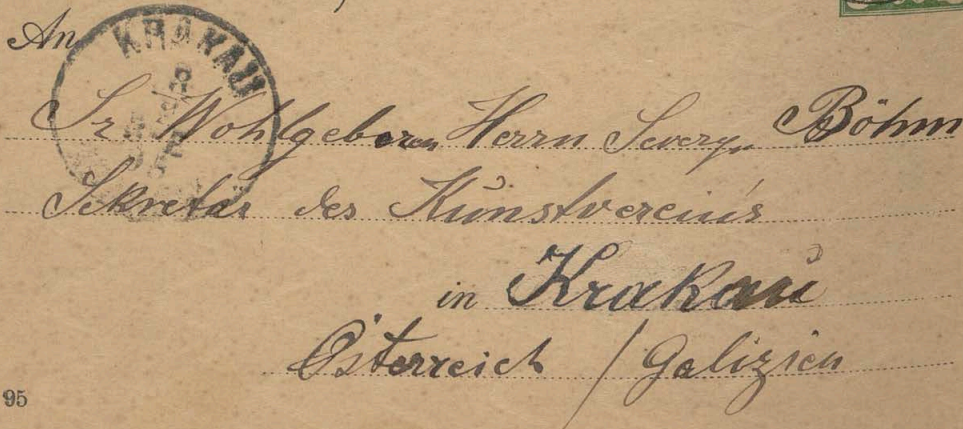 An
KRAKAU
Sr Wohlgeboren Herrn Seweryn Böhm
Sekretär des Kunstvereins
in Krakau
Österreich / Galizien
95